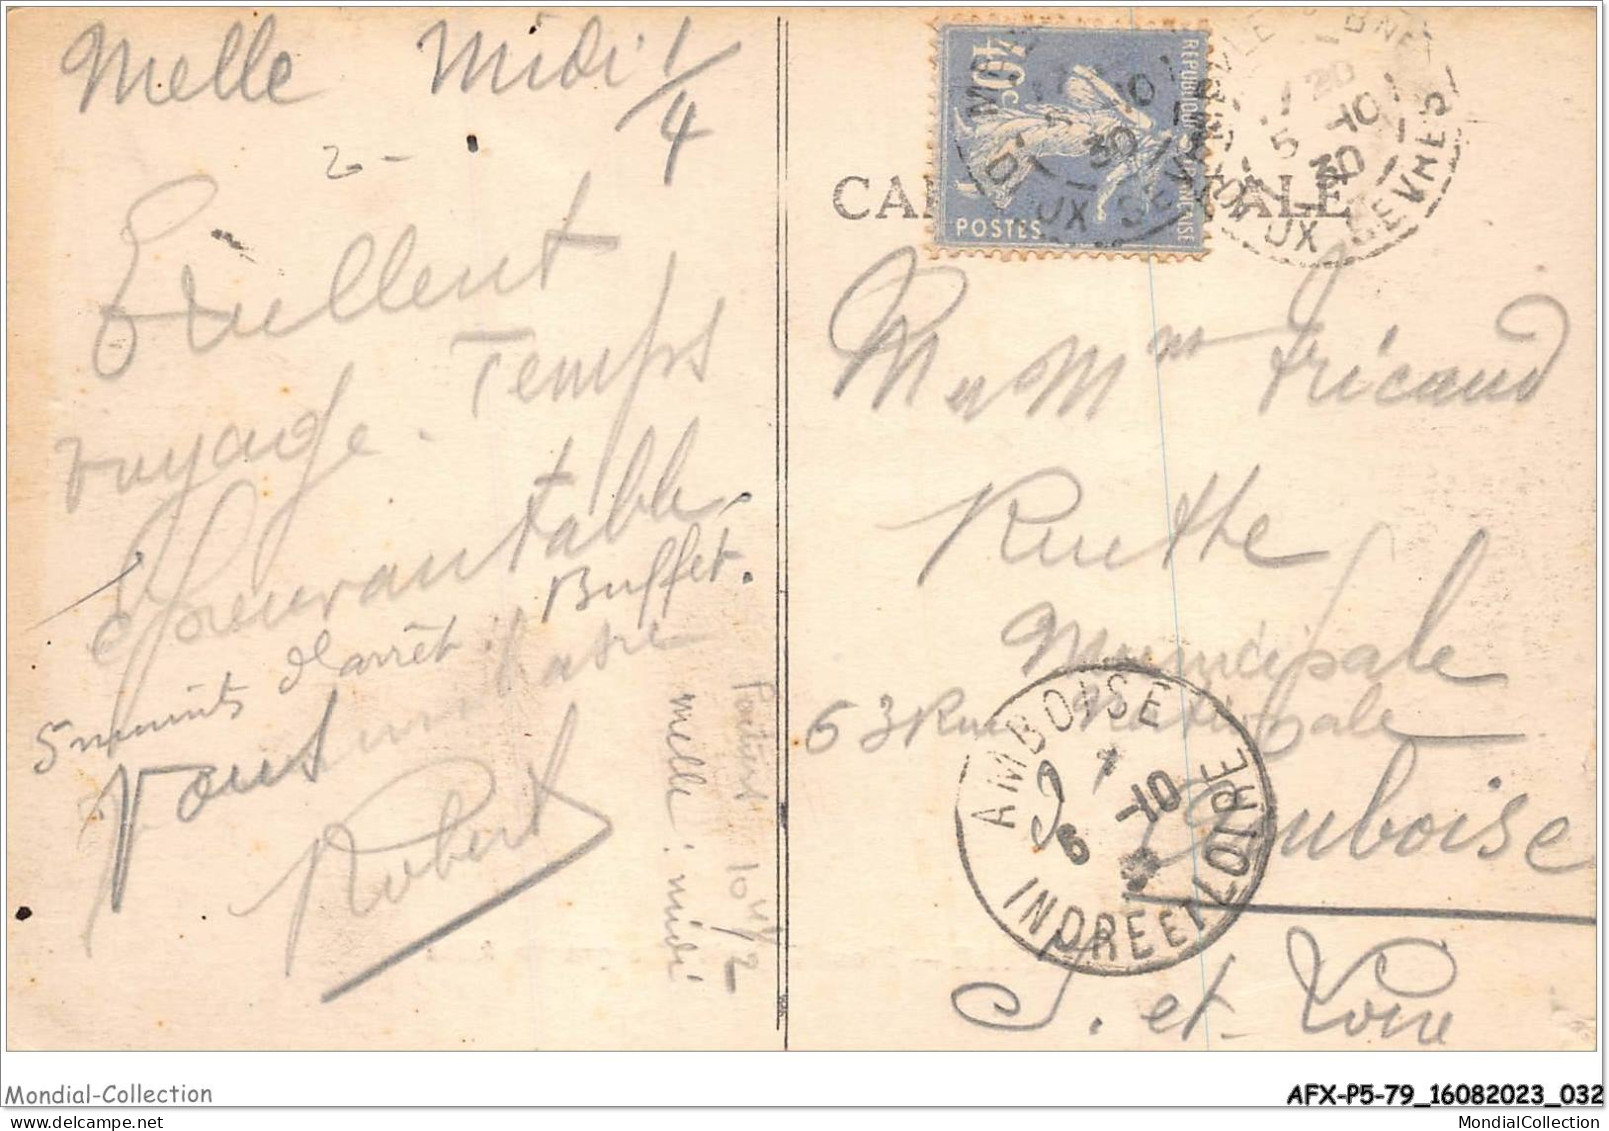 Melle Midi 1/4
2 -
Exellent
voyage. Temps
Epouvantable
5 minuits d'arrêt Buffet.
Vous
Robert
Poitiers 10 H 1/2
melle : midi
CARTE POSTALE
RÉPUBLIQUE FRANÇAISE
40c
POSTES
5 -10
30
DEUX SEVRES
20
5 -10
30
DEUX SEVRES
M et Mme Fricaud
Recette
Municipale
63 Rue Nationale
Amboise
I. et Loire
AMBOISE
6 -10
INDRE ET LOIRE
Mondial-Collection
AFX-P5-79_16082023_032
MondialCollection